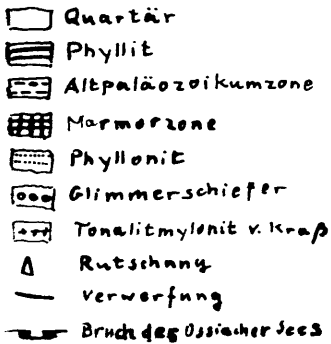 Quartär
Phyllit
Altpaläozoikumzone
Marmorzone
Phyllonit
Glimmerschiefer
Tonalitmylonit v. Kraß
Rutschang
Verwerfung
Bruch des Ossiacher Sees